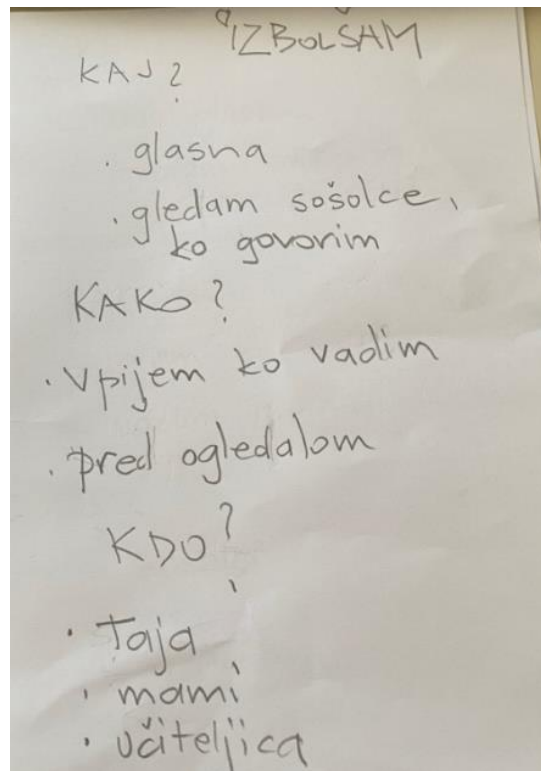 IZBOLŠAM
KAJ?
. glasna
. gledam sošolce,
ko govorim
KAKO?
. Vpijem ko vadim
. pred ogledalom
KDO?
. Taja
. mami
. učiteljica